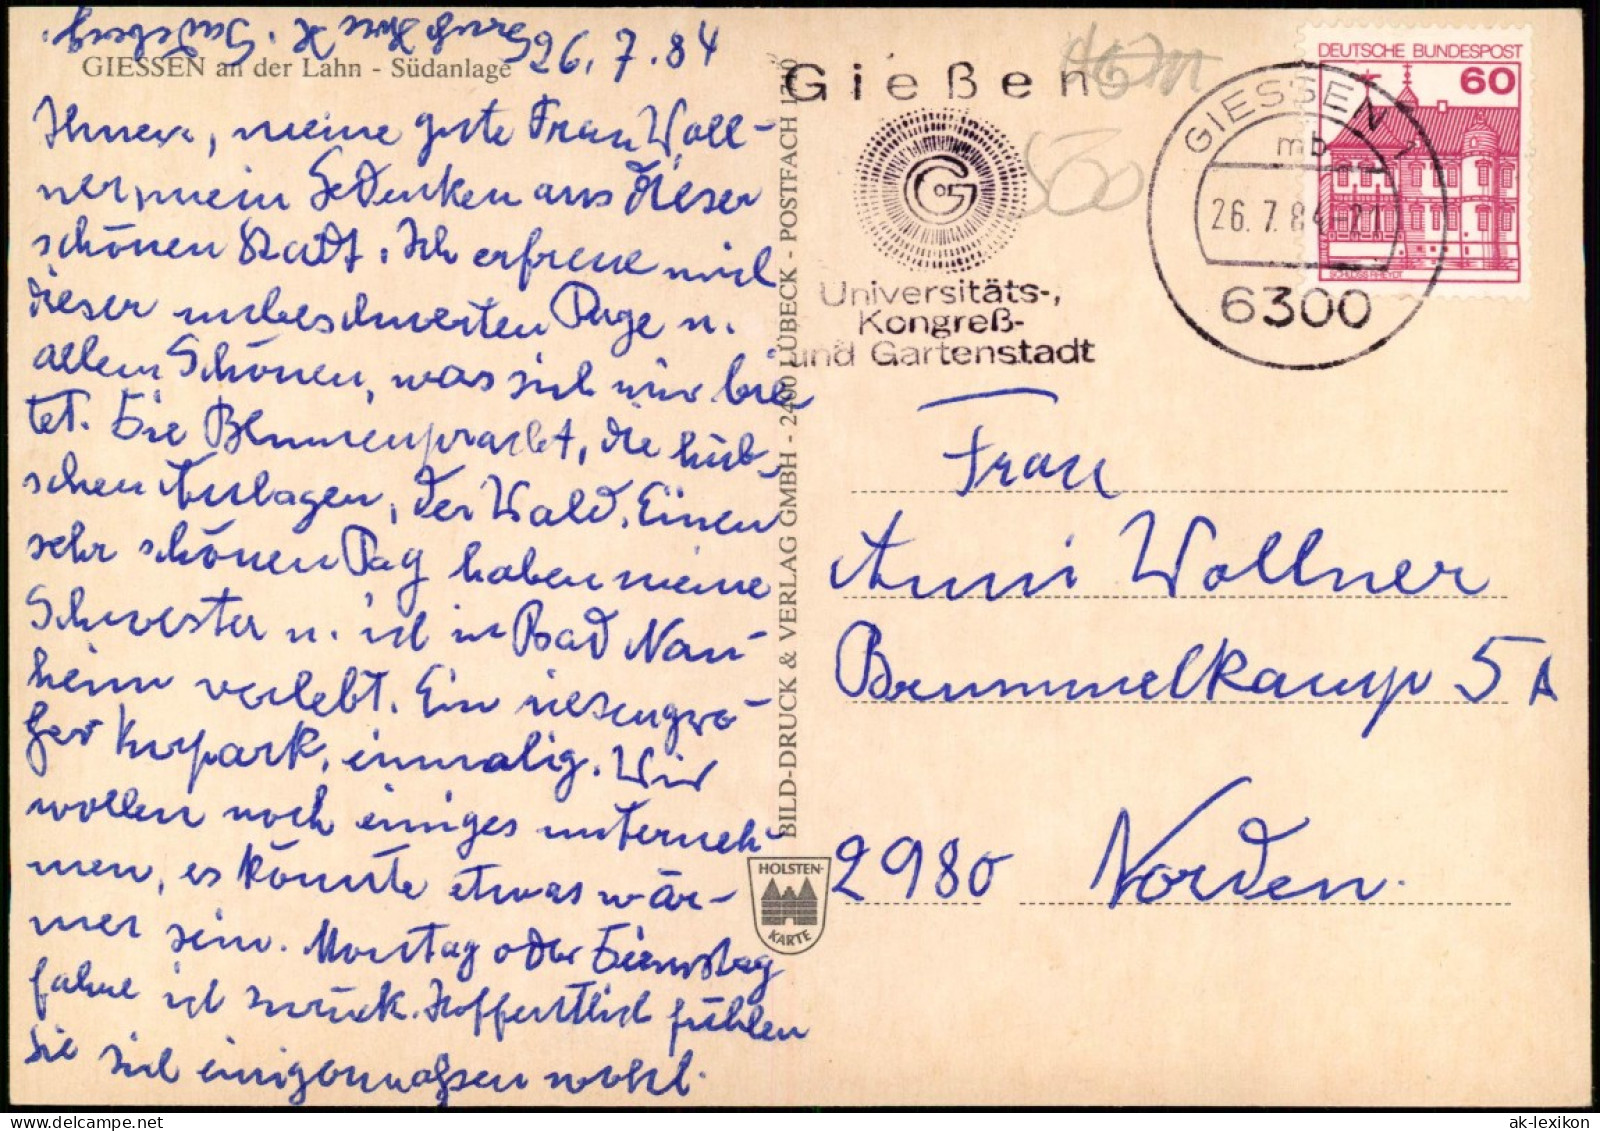 GIESSEN an der Lahn - Südanlage
26.7.84
Ihnen, meine gute Frau Woll-
ner, mein Gedenken aus dieser
schönen Stadt. Ich erfreue mich
dieser unbeschwerten Tage u.
allem Schönen, was sich mir bie
tet. Die Blumenpracht, die hüb-
schen Anlagen, der Wald. Einen
sehr schönen Tag haben meine
Schwester u. ich in Bad Nau-
heim verlebt. Ein riesengro-
ßer Kurpark, einmalig. Wir
wollen noch einiges unterneh-
men, es könnte etwas wär-
mer sein. Montag oder Dienstag
fahre ich zurück. Hoffentlich fühlen
Sie sich einigermaßen wohl.
Ihre H.
BILD-DRUCK & VERLAG GMBH - 2400 LÜBECK - POSTFACH
HOLSTEN-
KARTE
Gießen
G
Universitäts-,
Kongreß-
und Gartenstadt
500
GIESSEN 1
mb
26.7.84-21
6300
DEUTSCHE BUNDESPOST
60
SCHLOSS RHEYDT
Frau
Anni Wollner
Brummelkamp 5A
2980 Norden.
ak-lexikon